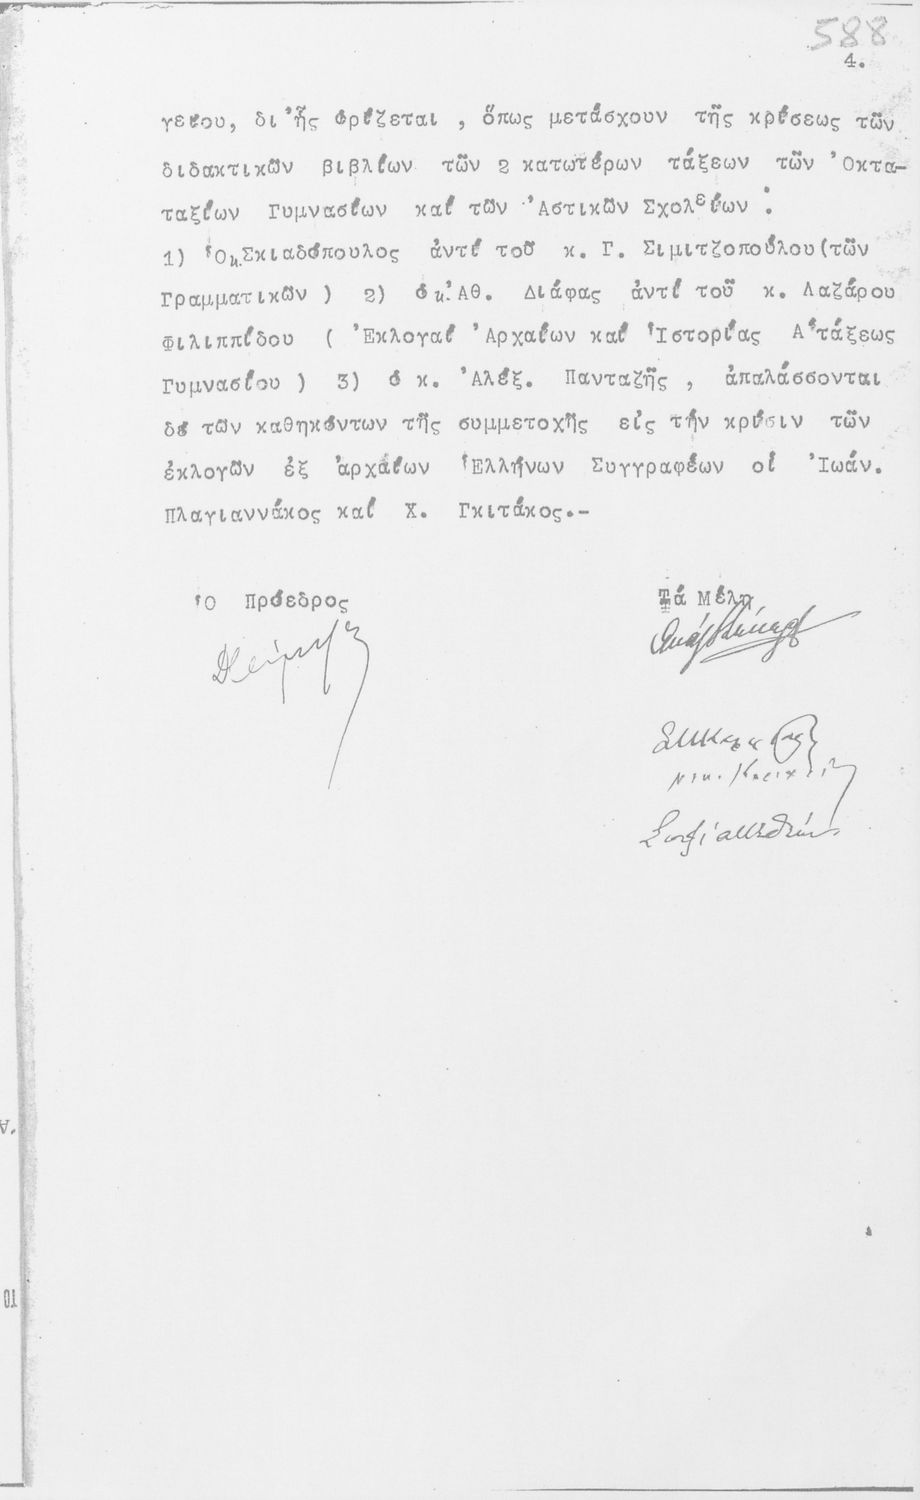 588
4.
γείου, δι'ἧς ὁρίζεται , ὅπως μετάσχουν τῆς κρίσεως τῶν
διδακτικῶν βιβλίων τῶν 2 κατωτέρων τάξεων τῶν Ὀκτα-
ταξίων Γυμνασίων καί τῶν Ἀστικῶν Σχολείων :
1) Ὁ κ. Σκιαδόπουλος ἀντί τοῦ κ. Γ. Σιμιτζοπούλου (τῶν
Γραμματικῶν ) 2) ὁ κ. Ἀθ. Διάφας ἀντί τοῦ κ. Λαζάρου
Φιλιππίδου ( Ἐκλογαί Ἀρχαίων καί Ἱστορίας Α' τάξεως
Γυμνασίου ) 3) ὁ κ. Ἀλέξ. Πανταζῆς , ἀπαλάσσονται
δέ τῶν καθηκόντων τῆς συμμετοχῆς εἰς τήν κρίσιν τῶν
ἐκλογῶν ἐξ ἀρχαίων Ἑλλήνων Συγγραφέων οἱ Ἰωάν.
Πλαγιαννάκος καί Χ. Γκιτάκος.-
Ὁ Πρόεδρος
Τά Μέλη